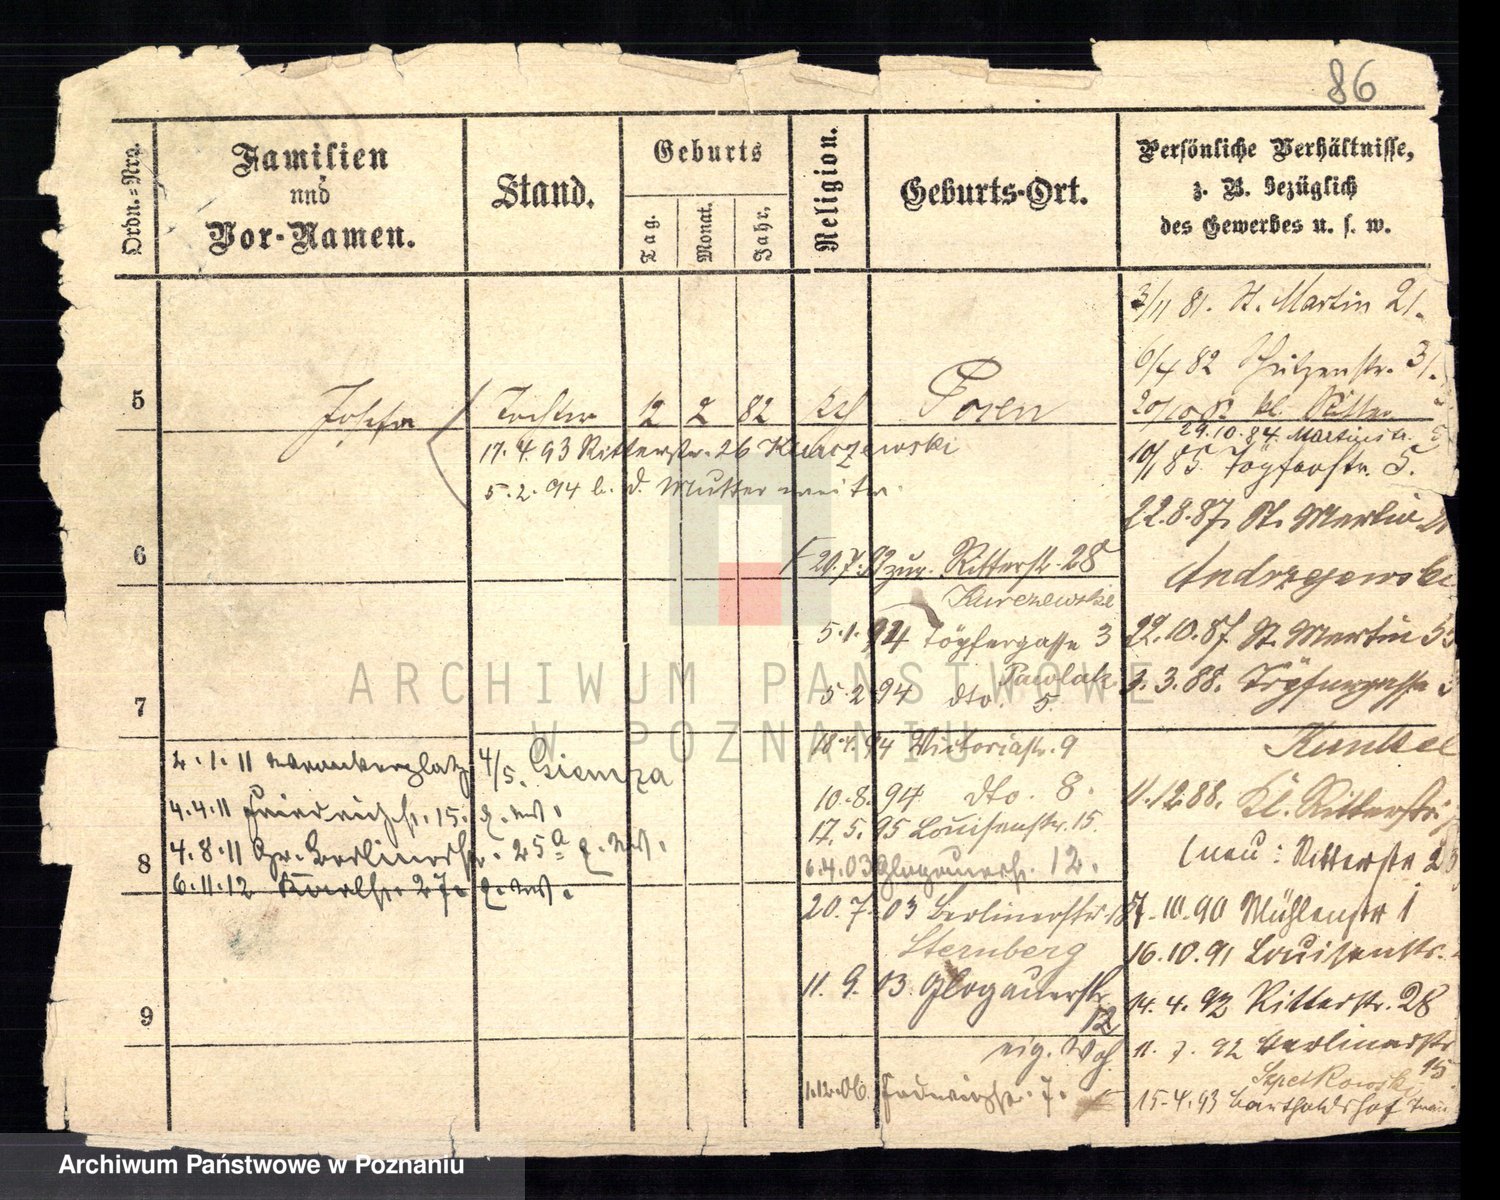 86
Ordn.-Nro.
Familien
und
Vor-Namen.
Stand.
Geburts
Tag.
Monat.
Jahr.
Religion.
Geburts-Ort.
Persönliche Verhältnisse,
z. B. bezüglich
des Gewerbes u. s. w.
3/11 81. St. Martin 21.
6/4 82 Schützenstr. 31.
5 Josefa Tochter 12 2 82 kath Posen
kl. Ritter
29.10.84. Martinstr. 5
17.4.93 Ritterstr. 26 Kurczewski
10/1 85 Töpferstr. 5.
5.2.94 b. d. Mutter
22.8.87. St. Martin
6
20.7.92 zur. Ritterstr. 28
Andrzejewski
Kurczewski
5.1.94 Töpfergasse 3
22.10.87 St. Martin 53
Pawlak
5.2.94 dto. 5.
3.3.88. Töpfergasse
7
ARCHIWUM PAŃSTWOWE
W POZNANIU
18.4.94 Victoriastr. 9
Kunkel
2.1.11 4/5. Giemza
10.8.94 dto. 8.
11.12.88. Kl. Ritterstr.
4.4.11 Friedrichstr. 15. z. W.
17.5.95 Louisenstr. 15.
(neu: Ritterstr
4.8.11 Gr. Berlinerstr. 25a z. W.
8
6.4.03 Glogauerstr. 12.
6.11.12 Karlstr 27. z. W.
20.7.03 Berlinerstr.
10.90 Mühlenstr 1
Sternberg
16.10.91 Louisenstr.
11.9.03 Glogauerstr.
12
14.4.92 Ritterstr. 28
9
eig. Woh.
11.7.92 Berlinerstr
15.
Szpetkowski
1.12.06. 7.
15.4.93 Bartholdshof
Archiwum Państwowe w Poznaniu